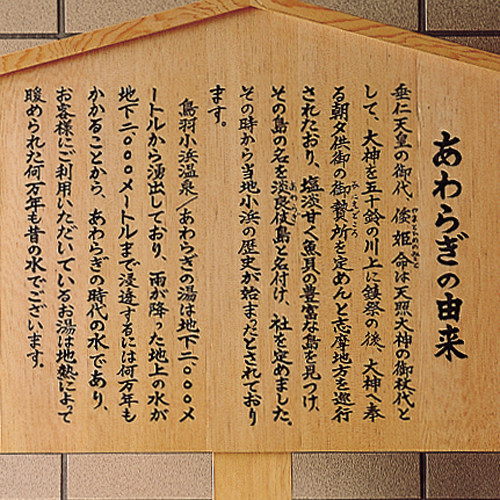 あわらぎの由来
垂仁天皇の御代、倭姫命は天照大神の御杖代と
して、大神を五十鈴の川上に鎮祭の後、大神へ奉
る朝夕供御の御贄所を定めんと志摩地方を巡行
されたおり、塩淡甘く魚貝の豊富な島を見つけ、
その島の名を淡良伎島と名付け、社を定めました。
その時から当地小浜の歴史が始まったとされており
ます。
鳥羽小浜温泉／あわらぎの湯は地下二〇〇〇メ
ートルから湧出しており、雨が降った地上の水が
地下二〇〇〇メートルまで浸透するには何万年も
かかることから、あわらぎの時代の水であり、
お客様にご利用いただいているお湯は地熱によって
暖められた何万年も昔の水でございます。